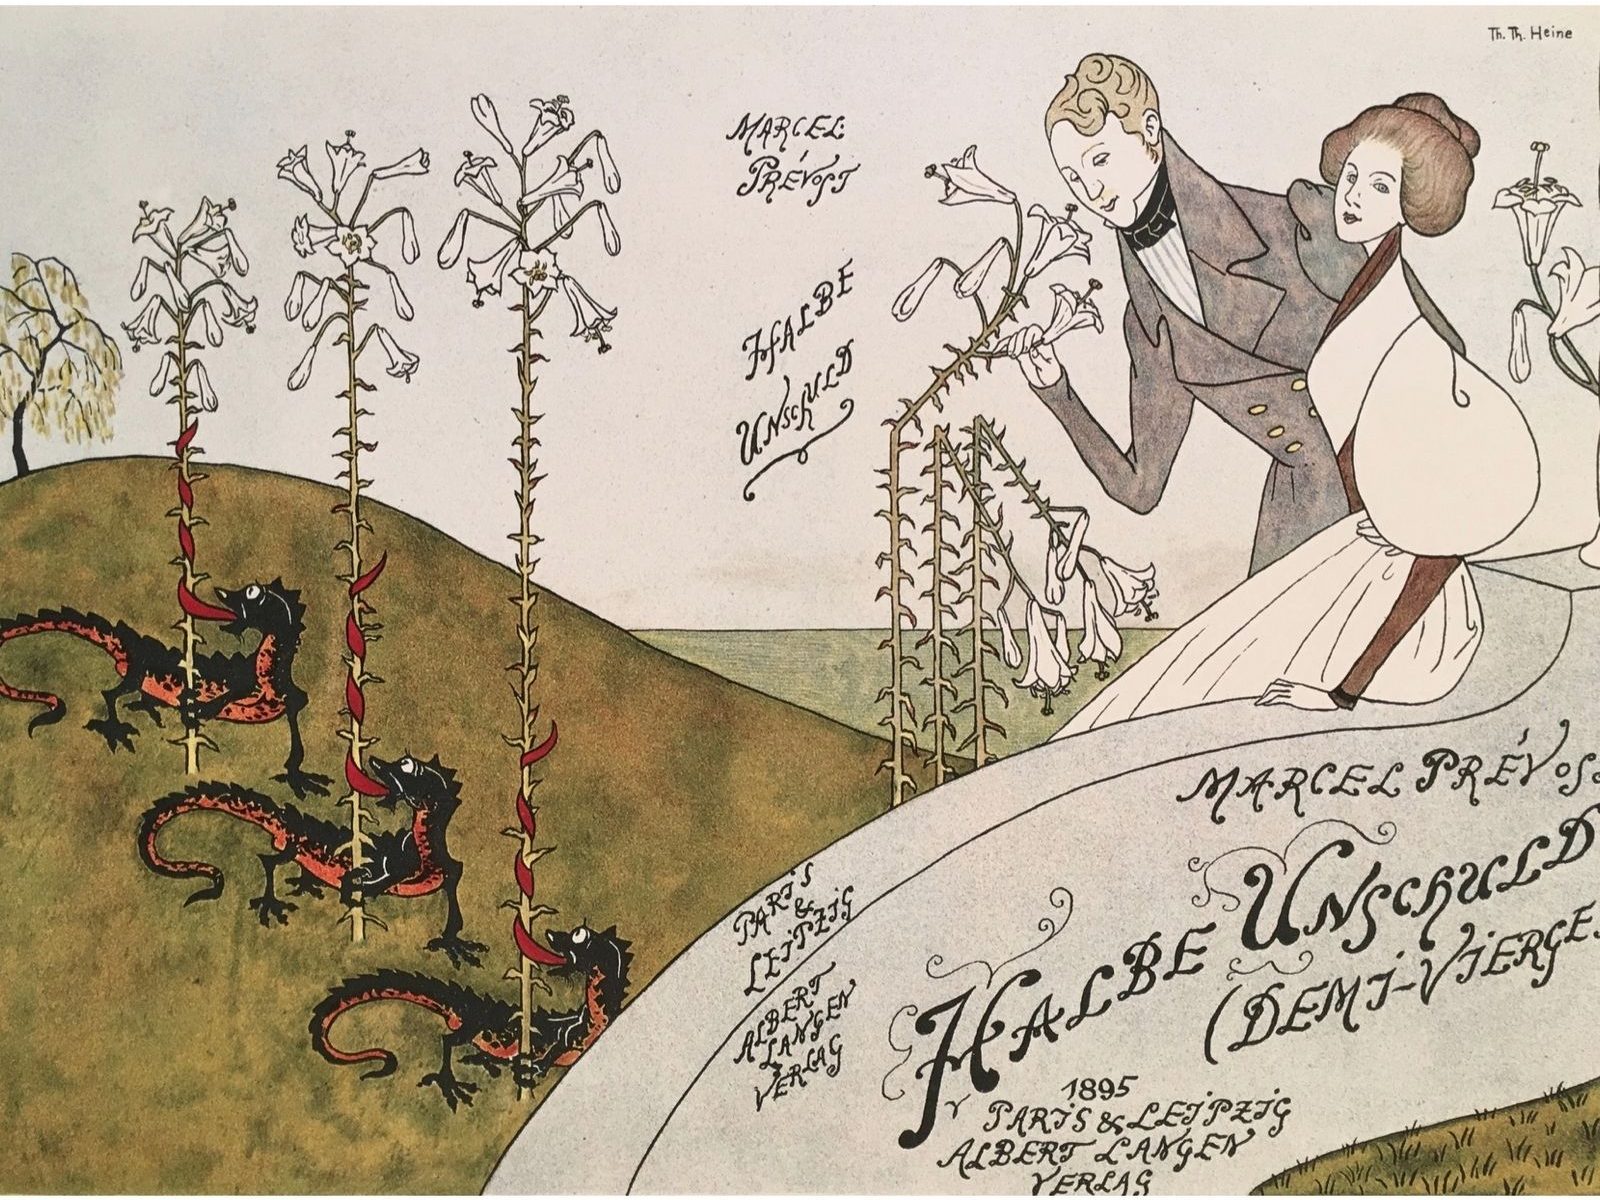 Th. Th. Heine
MARCEL
PRÉVOST
HALBE
UNSCHULD
PARIS
&
LEIPZIG
ALBERT
LANGEN
VERLAG
MARCEL PRÉVOS
HALBE UNSCHULD
(DEMI-VIERGE
1895
PARIS & LEIPZIG
ALBERT LANGEN
VERLAG